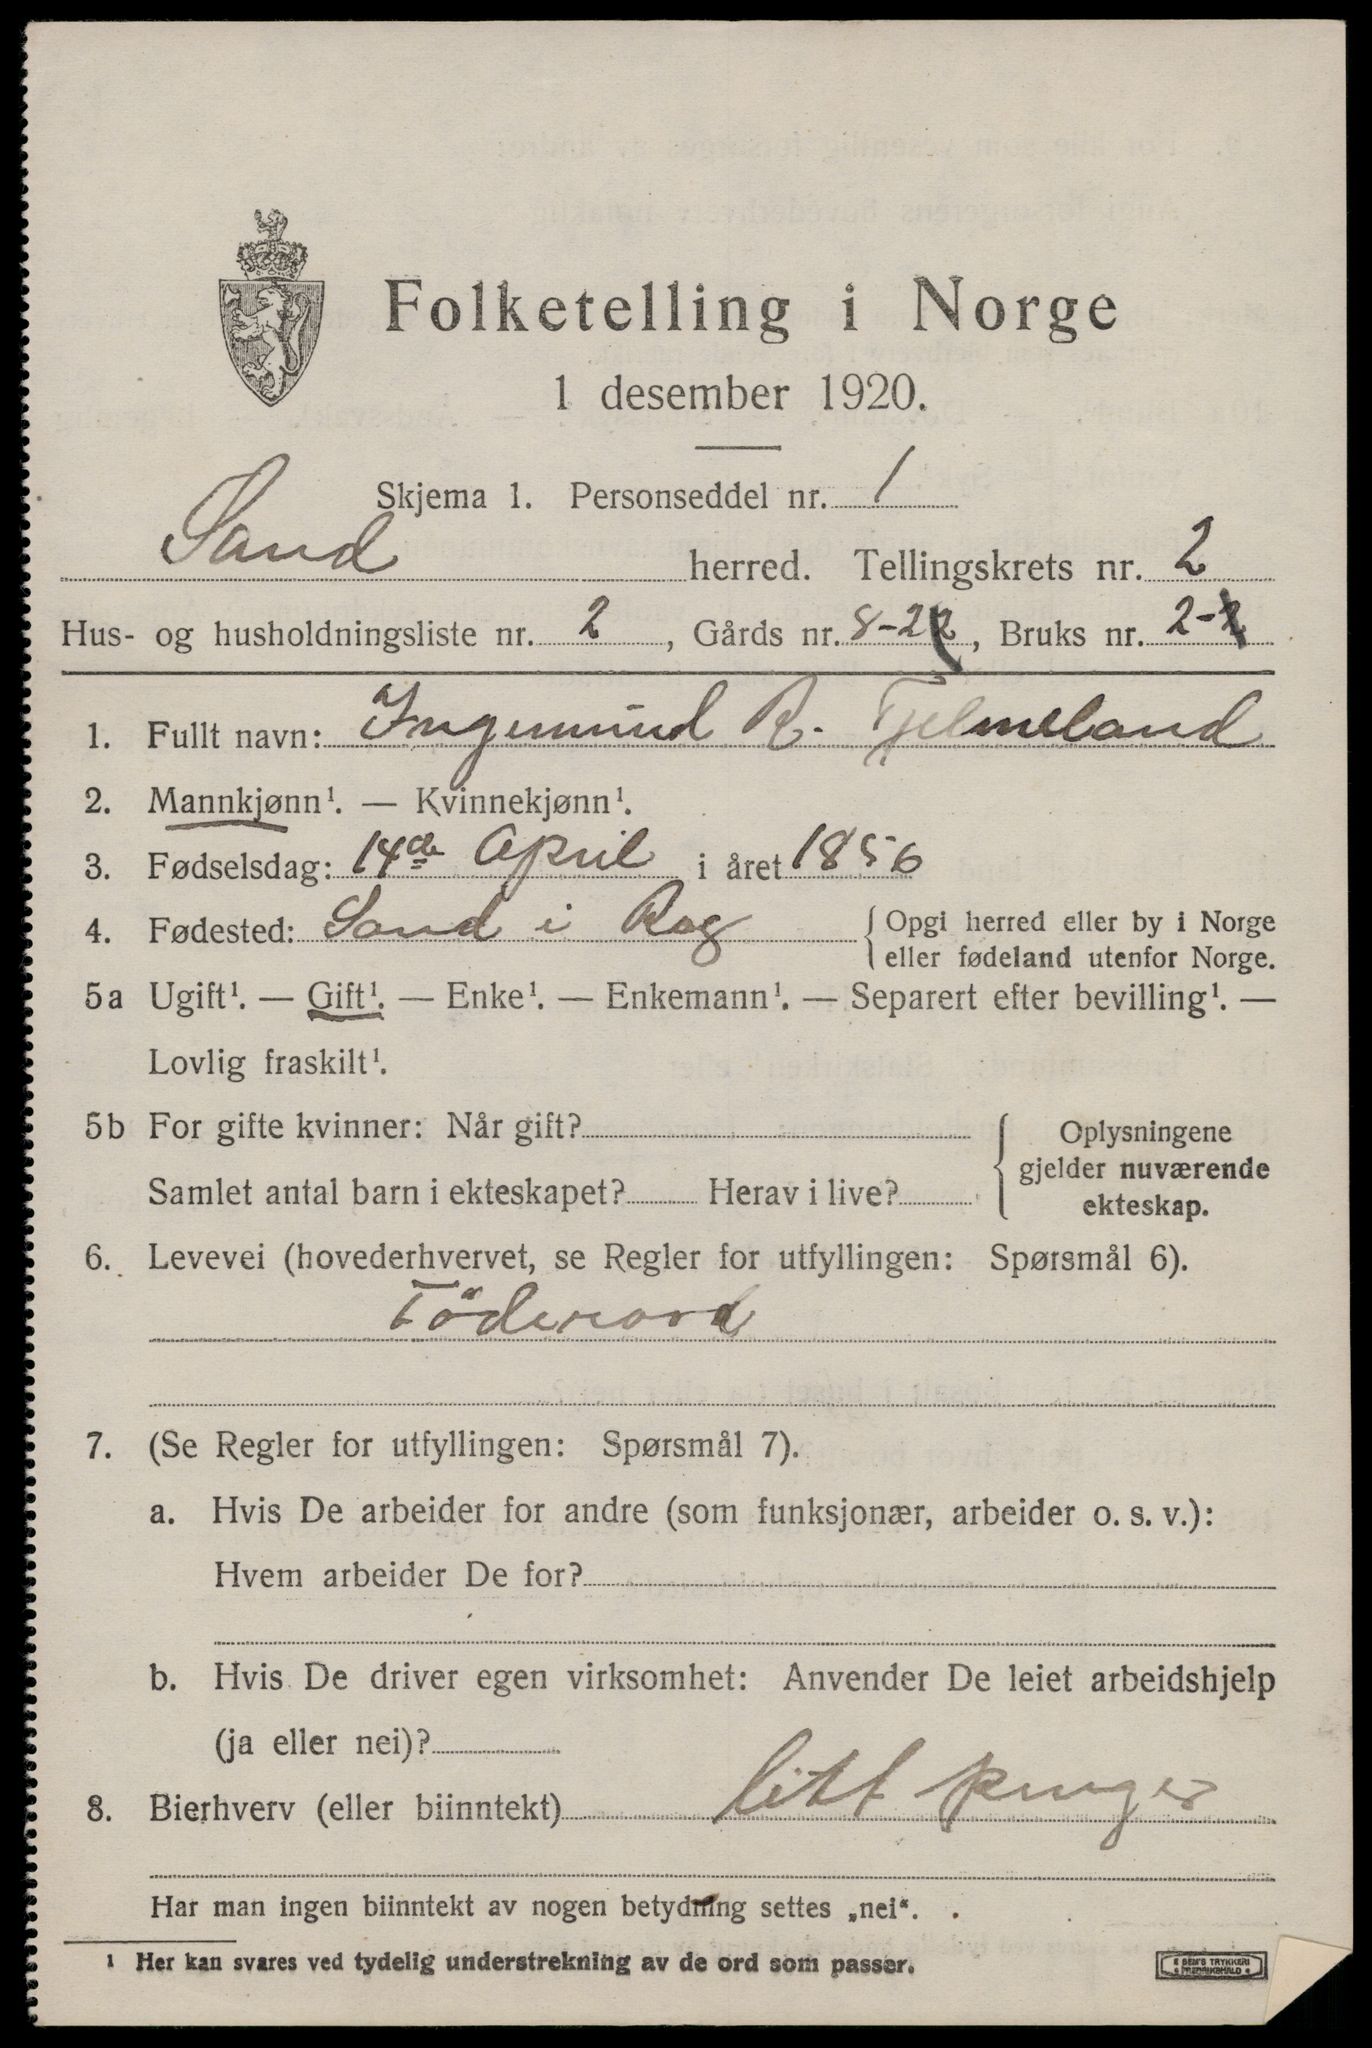 Folketelling i Norge
1 desember 1920.
Skjema 1. Personseddel nr. 1
Sand herred. Tellingskrets nr. 2
Hus- og husholdningsliste nr. 2, Gårds nr. 8-22, Bruks nr. 2-2
1. Fullt navn: Ingemund R. Tjelmeland
2. Mannkjønn¹. — Kvinnekjønn¹.
3. Fødselsdag: 14de April i året 1856
4. Fødested: Sand i Rog { Opgi herred eller by i Norge
eller fødeland utenfor Norge.
5a Ugift¹. — Gift¹. — Enke¹. — Enkemann¹. — Separert efter bevilling¹. —
Lovlig fraskilt¹.
5b For gifte kvinner: Når gift? { Oplysningene
gjelder nuværende
Samlet antal barn i ekteskapet? Herav i live? ekteskap.
6. Levevei (hovederhvervet, se Regler for utfyllingen: Spørsmål 6).
Föderaad
7. (Se Regler for utfyllingen: Spørsmål 7).
a. Hvis De arbeider for andre (som funksjonær, arbeider o. s. v.):
Hvem arbeider De for?
b. Hvis De driver egen virksomhet: Anvender De leiet arbeidshjelp
(ja eller nei)?
8. Bierhverv (eller biinntekt) litt penger
Har man ingen biinntekt av nogen betydning settes „nei“.
¹ Her kan svares ved tydelig understrekning av de ord som passer.
SEM'S TRYKKERI
FREDRIKSHALD